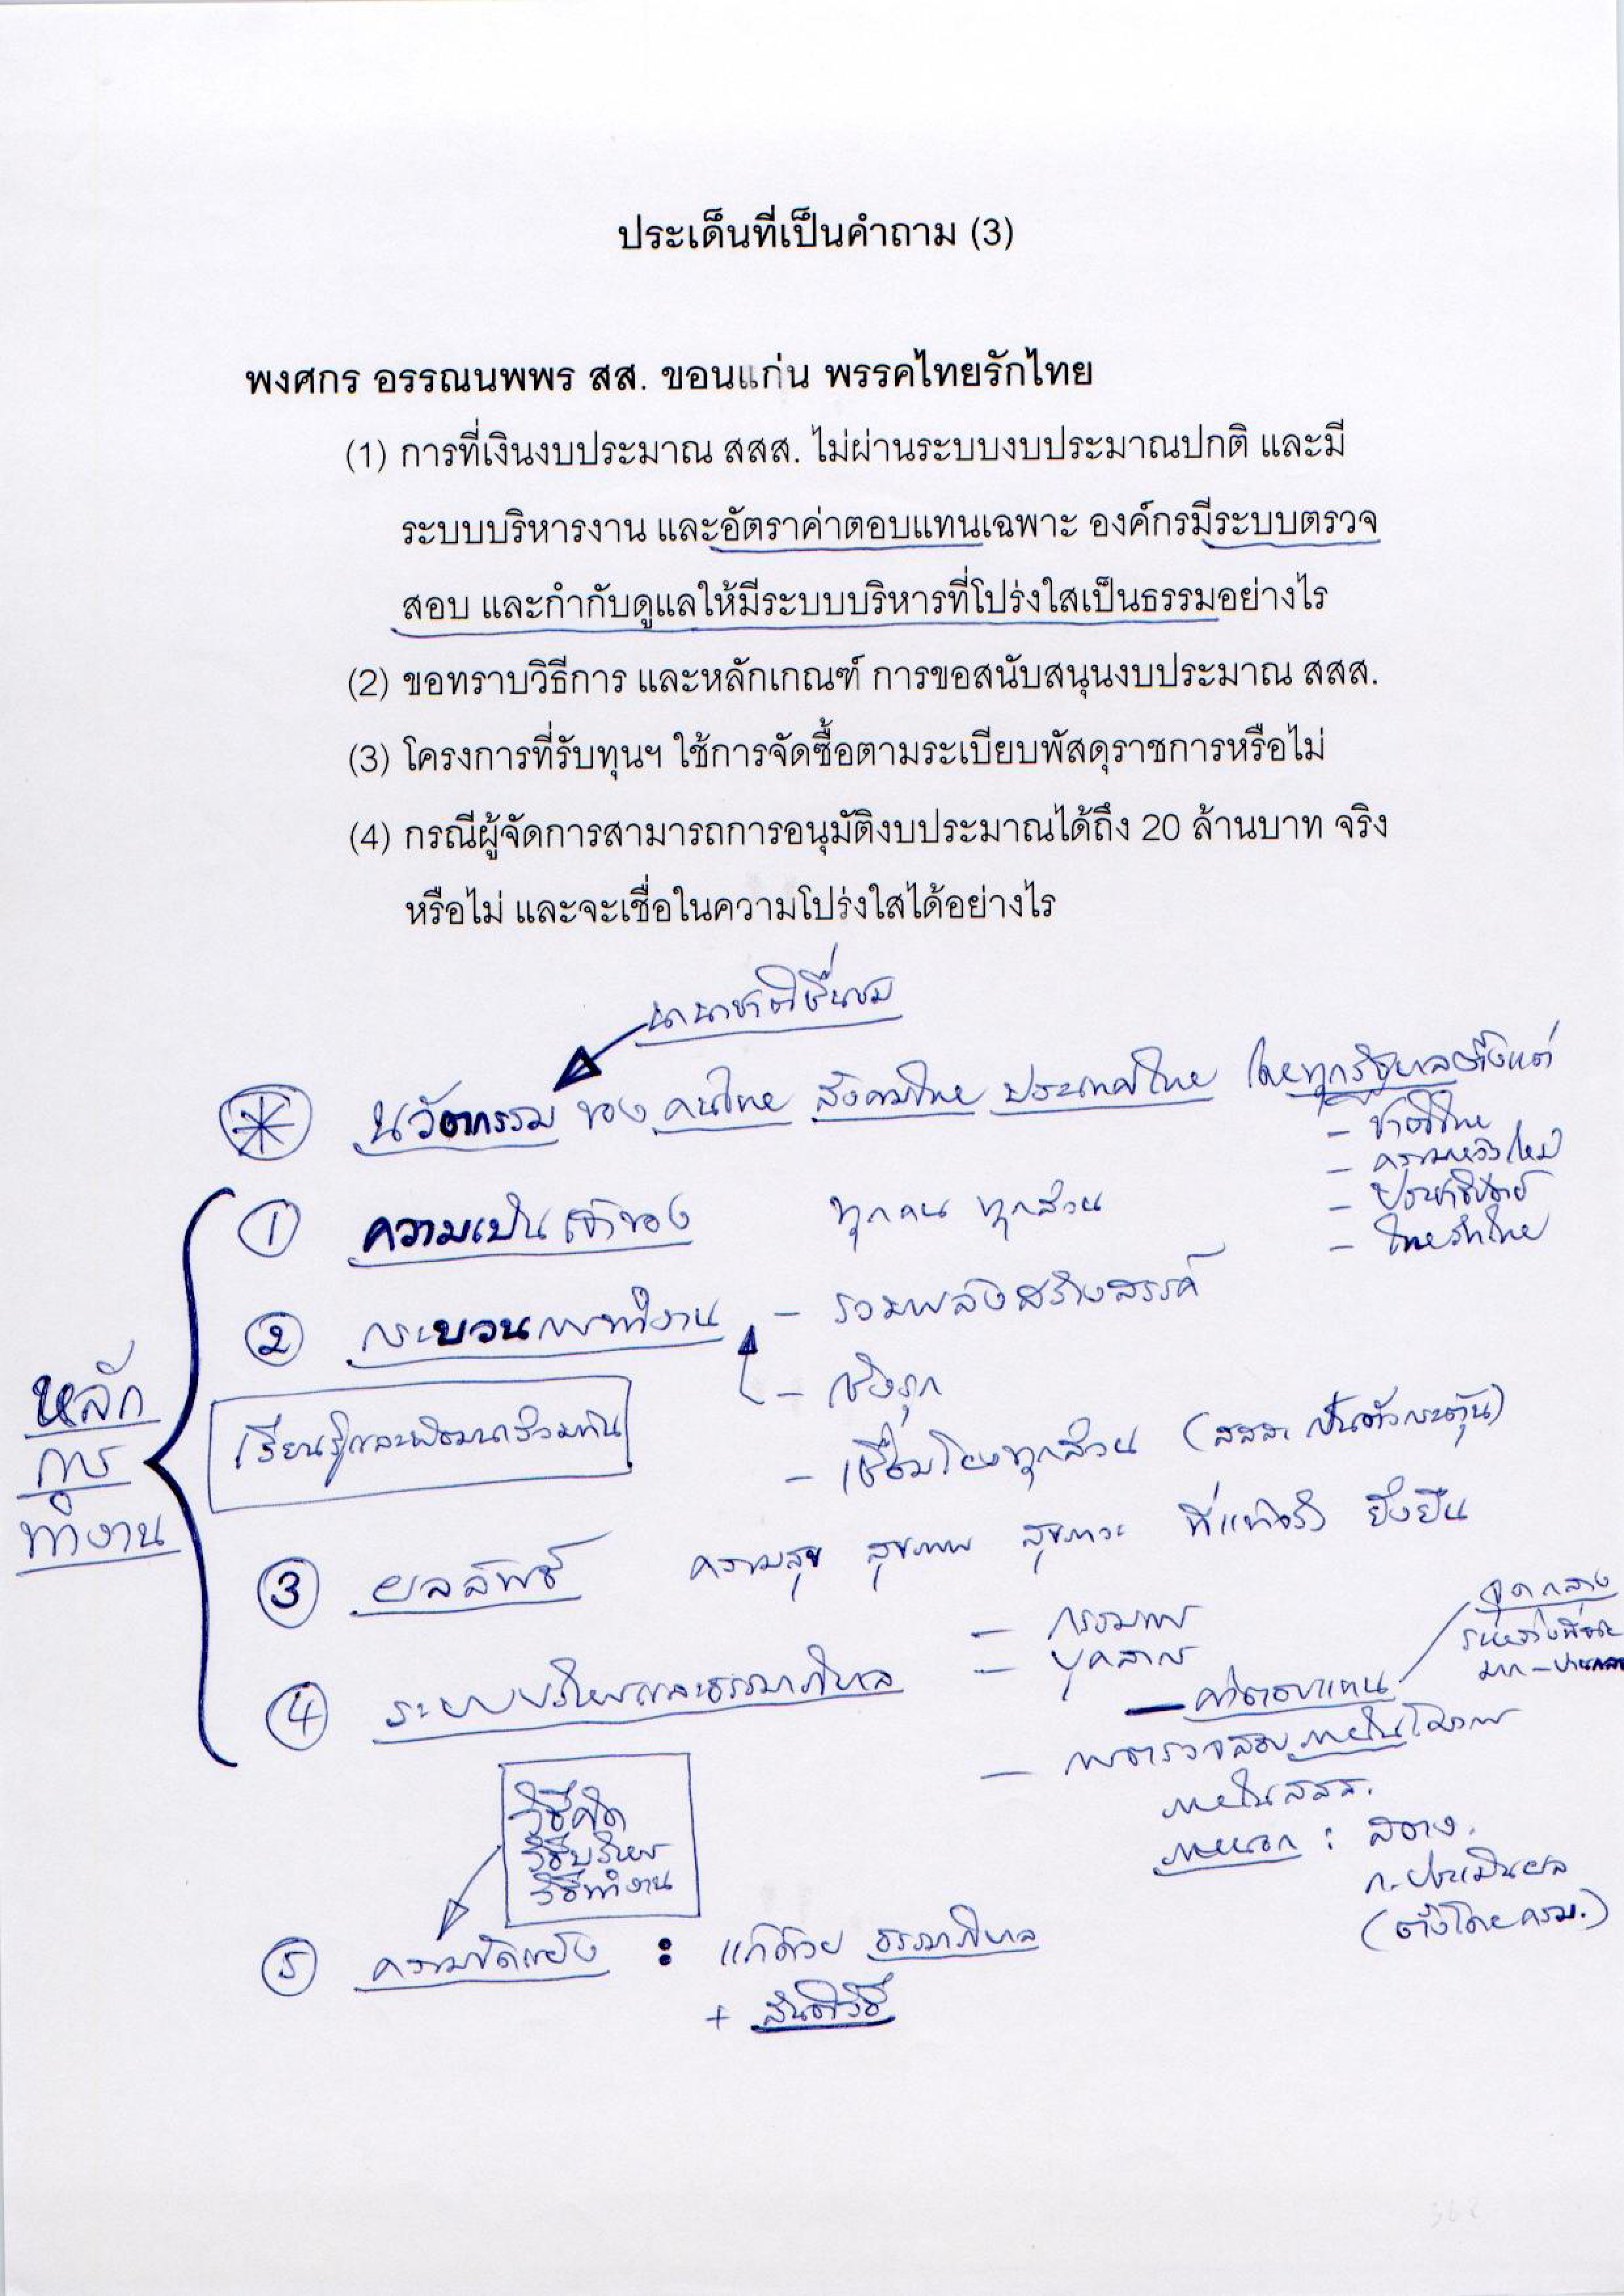 ประเด็นที่เป็นคำถาม (3)
พงศกร อรรณนพพร สส. ขอนแก่น พรรคไทยรักไทย
(1) การที่เงินงบประมาณ สสส. ไม่ผ่านระบบงบประมาณปกติ และมี
ระบบบริหารงาน และอัตราค่าตอบแทนเฉพาะ องค์กรมีระบบตรวจ
สอบ และกำกับดูแลให้มีระบบบริหารที่โปร่งใสเป็นธรรมอย่างไร
(2) ขอทราบวิธีการ และหลักเกณฑ์ การขอสนับสนุนงบประมาณ สสส.
(3) โครงการที่รับทุนฯ ใช้การจัดซื้อตามระเบียบพัสดุราชการหรือไม่
(4) กรณีผู้จัดการสามารถการอนุมัติงบประมาณได้ถึง 20 ล้านบาท จริง
หรือไม่ และจะเชื่อในความโปร่งใสได้อย่างไร
นานาชาติชื่นชม
นวัตกรรม ของ คนไทย สังคมไทย ประเทศไทย โดยทุกรัฐบาลตั้งแต่
- ชาติไทย
- ความหวังใหม่
- ประชาธิปัตย์
- ไทยรักไทย
หลัก
การ
ทำงาน
① ความเป็นเจ้าของ ทุกคน ทุกส่วน
② กระบวนการทำงาน - รวมพลังสร้างสรรค์
- เชิงรุก
เรียนรู้และพัฒนาร่วมกัน
- เชื่อมโยงทุกส่วน (สสส. เป็นตัวกระตุ้น)
③ ผลลัพธ์ ความสุข สุขภาพ สุขภาวะ ที่แท้จริง ยั่งยืน
④ ระบบบริหารและธรรมาภิบาล
- กรรมการ
- บุคลากร
- ค่าตอบแทน
จุดกลาง
- การตรวจสอบ ภายในโครงการ
ภายใน สสส.
ภายนอก : สตง.
ก. ประเมินผล
(ตั้งโดย ครม.)
วิธีคิด
วิธีบริหาร
วิธีทำงาน
⑤ ความขัดแย้ง : แก้ด้วย ธรรมาภิบาล
+ สันติวิธี